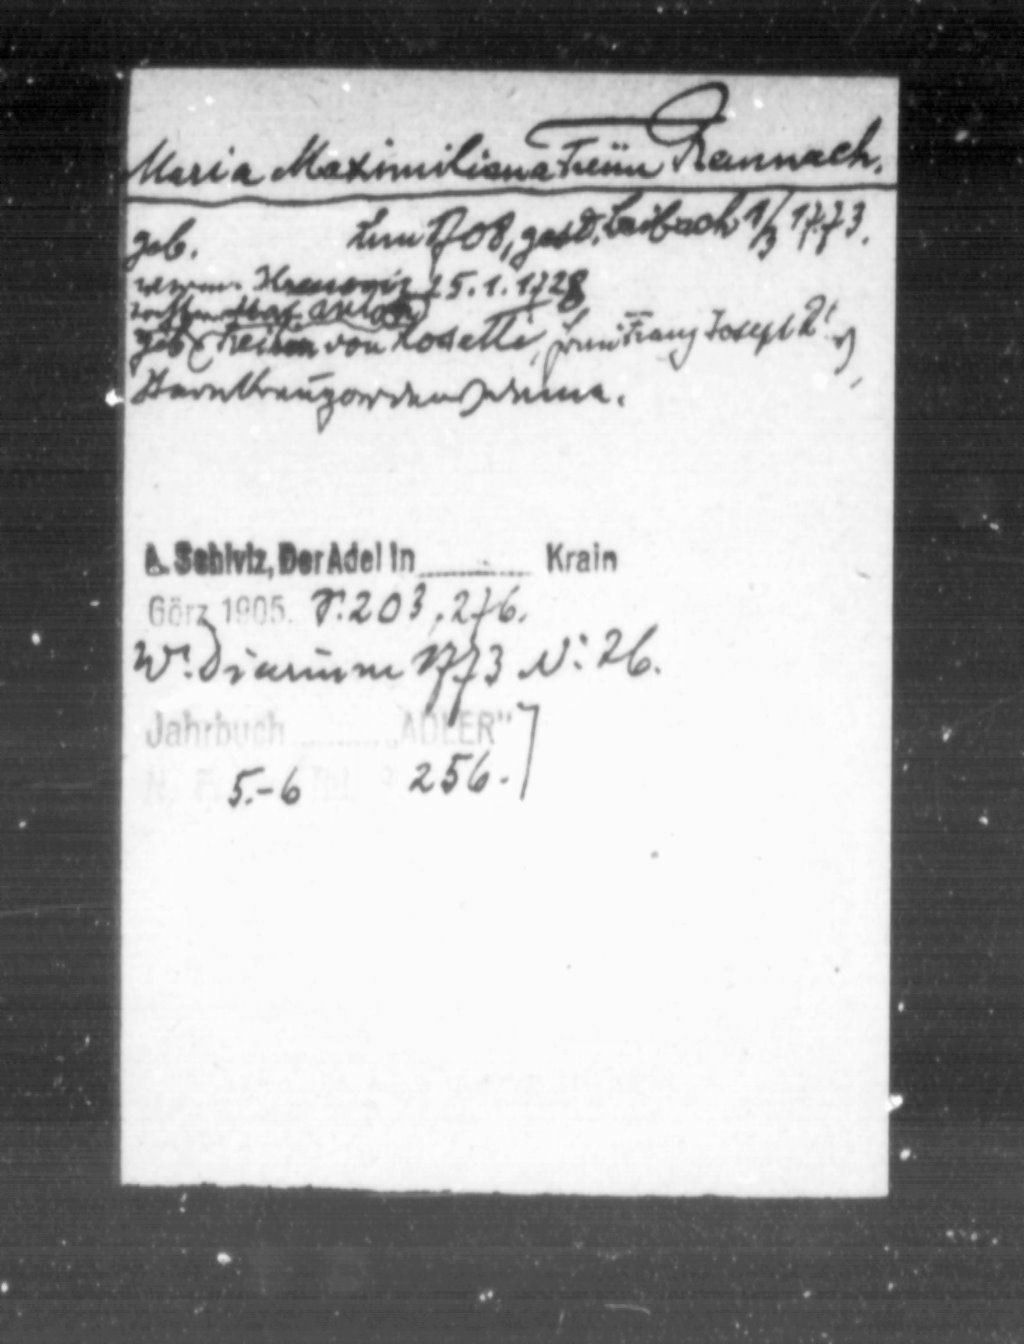 Maria Maximiliana Freiin Rannach.
geb. um 1708, gest. Laibach 1/3 1773.
verm. 25.1.1728
geb. Freiin von Rosetti, Franz Joseph
Sternkreuzordensdame.
A. Schiviz, Der Adel in ........ Krain
Görz 1905. S. 203, 276.
Wr. Diarium 1773 N: 26.
Jahrbuch ........ „ADLER"
N. F. 5.-6 256.